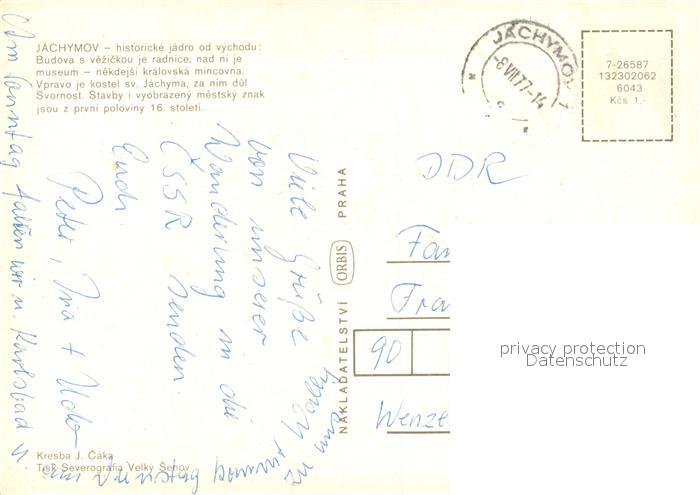 JÁCHYMOV – historické jádro od východu:
Budova s věžičkou je radnice, nad ní je
museum – někdejší královská mincovna.
Vpravo je kostel sv. Jáchyma, za ním důl
Svornost. Stavby i vyobrazený městský znak
jsou z první poloviny 16. století.
JÁCHYMOV 1
-8.VII.77-14
7-26587
132302062
6043
Kčs 1.-
DDR
Viele Grüße
von unserer
Wanderung in die
ČSSR senden
Euch
Peter, Ina + Udo
Am Sonntag fahren wir n. Karlsbad u.
am Dienstag kommen
NAKLADATELSTVÍ ORBIS PRAHA
Fam
Fra
90
Wenze
privacy protection
Datenschutz
Kresba J. Čáka
Tisk Severografia Velký Šenov